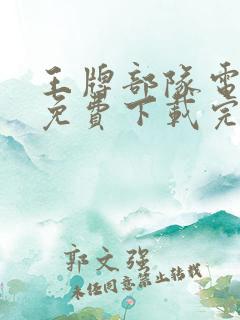 王牌部隊電
免費下載完
郭文強
未經同意禁止轉載